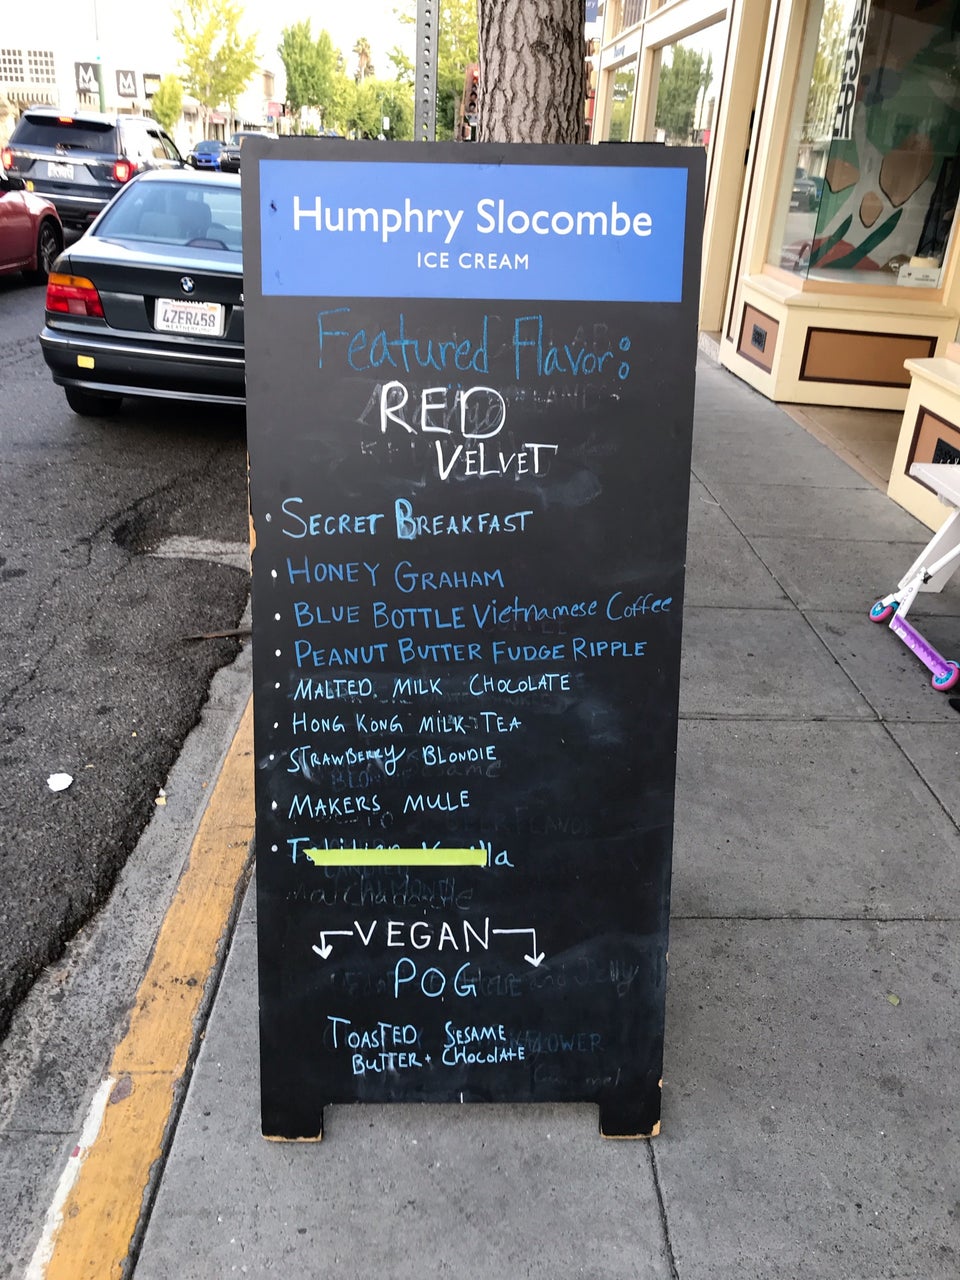 Humphry Slocombe
ICE CREAM
Featured Flavor:
RED
VELVET
• SECRET BREAKFAST
• HONEY GRAHAM
• BLUE BOTTLE Vietnamese Coffee
• PEANUT BUTTER FUDGE RIPPLE
• MALTED MILK CHOCOLATE
• HONG KONG MILK TEA
• STRAWBERRY BLONDIE
• MAKERS MULE
VEGAN
POG
TOASTED SESAME
BUTTER + CHOCOLATE
M
M
4ZER458